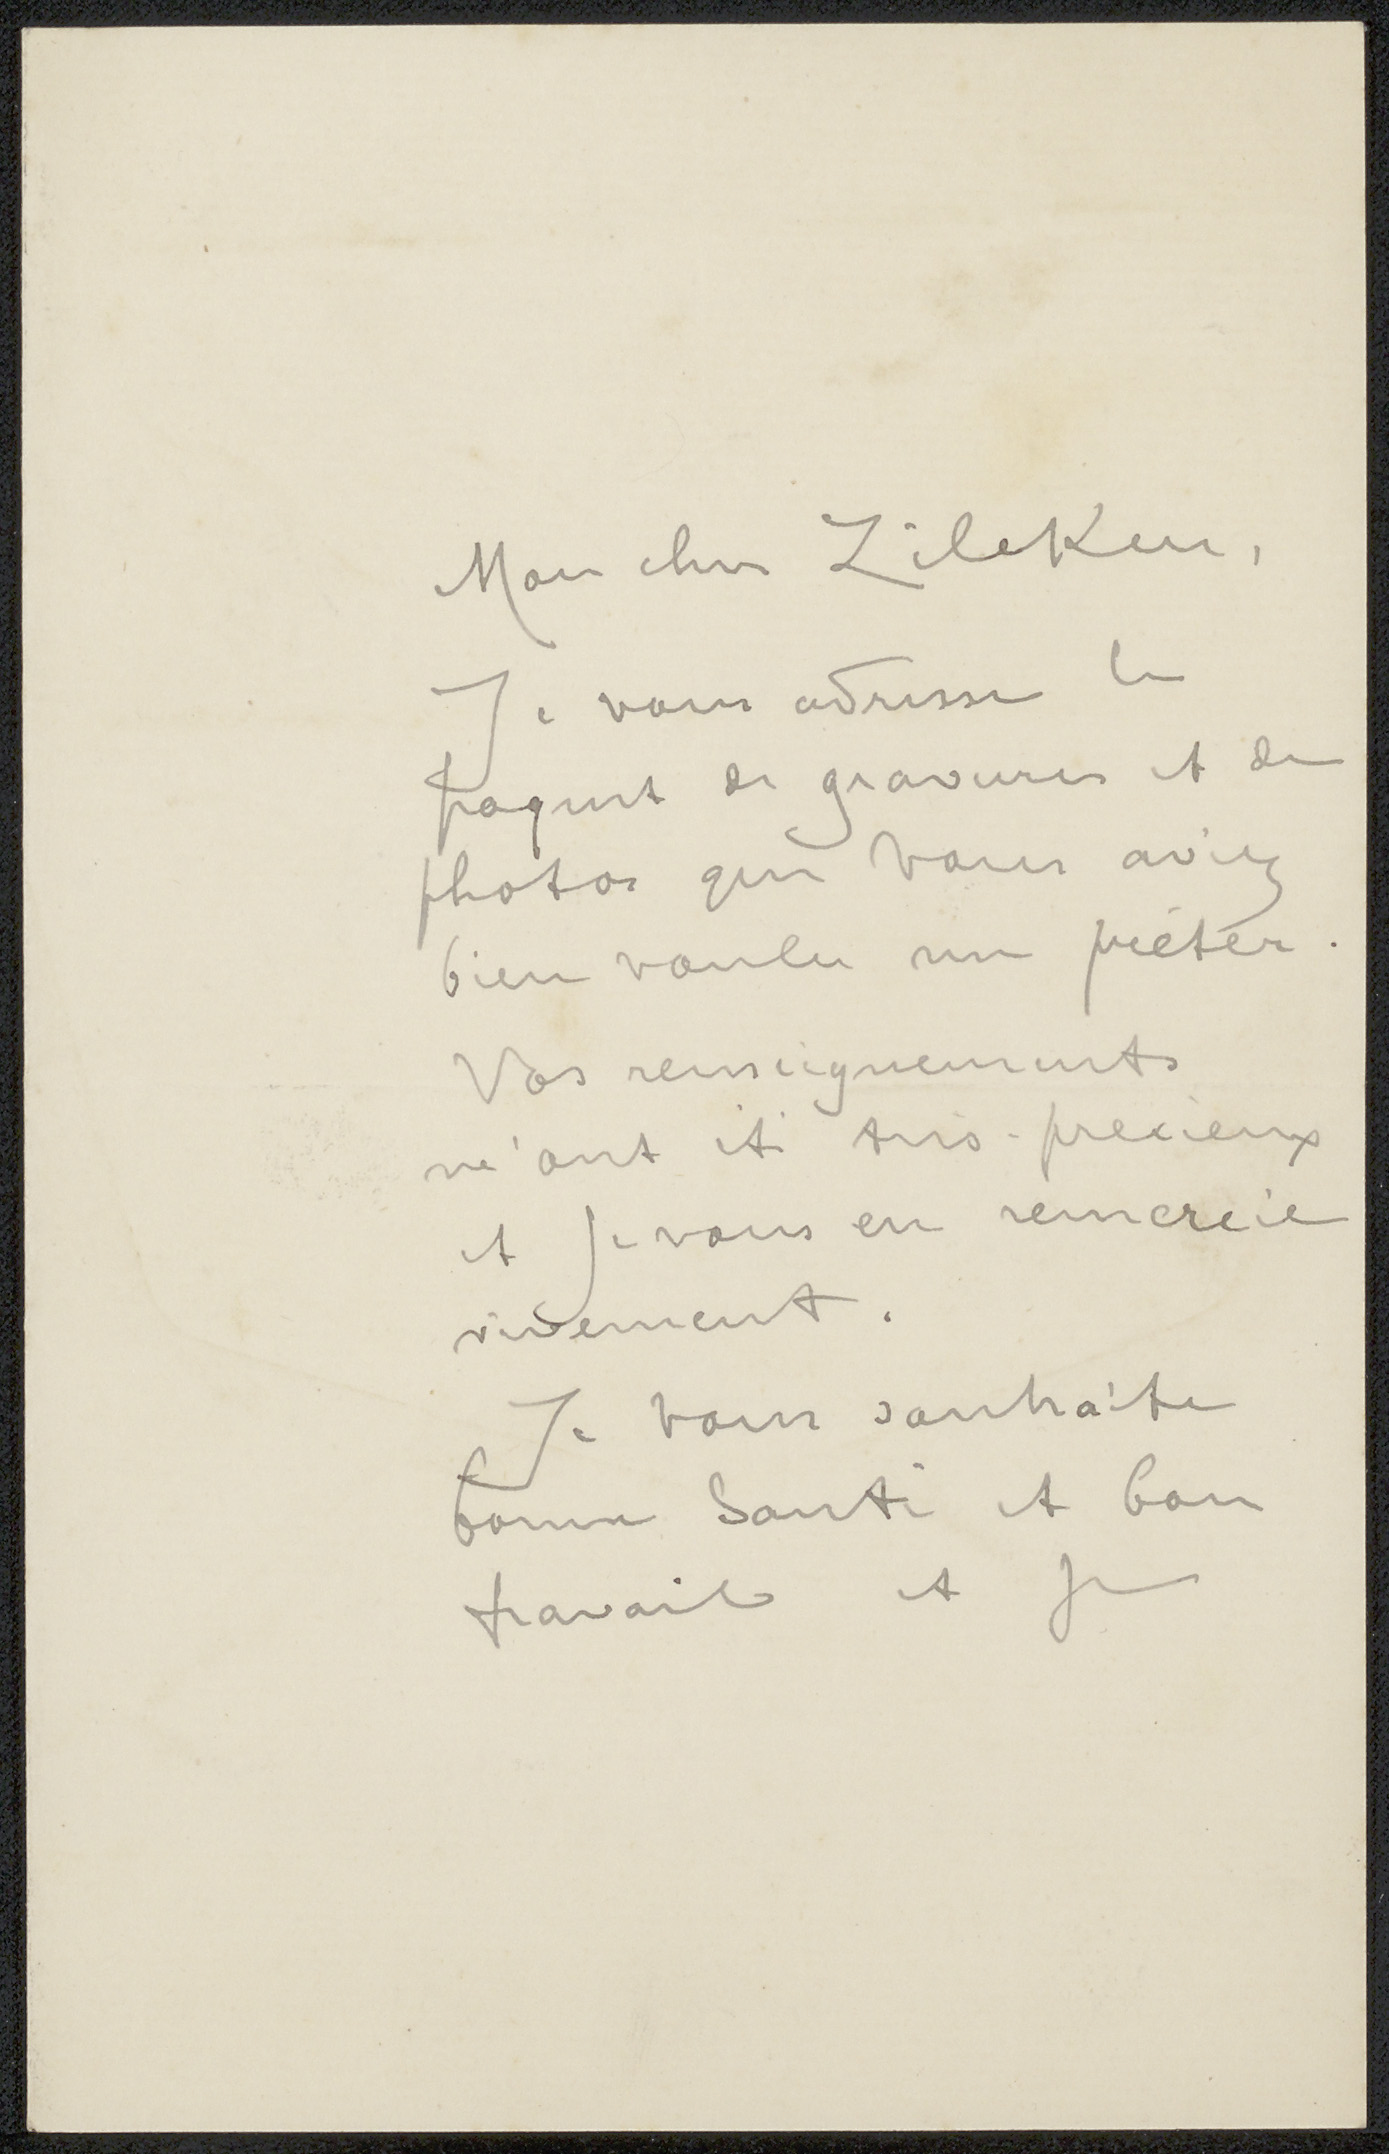 Mon cher Zileken,
Je vous adresse le
paquet de gravures et de
photos que vous aviez
bien voulu me prêter.
Vos renseignements
m'ont été très-précieux
et je vous en remercie
vivement.
Je vous souhaite
bonne santé et bon
travail et je